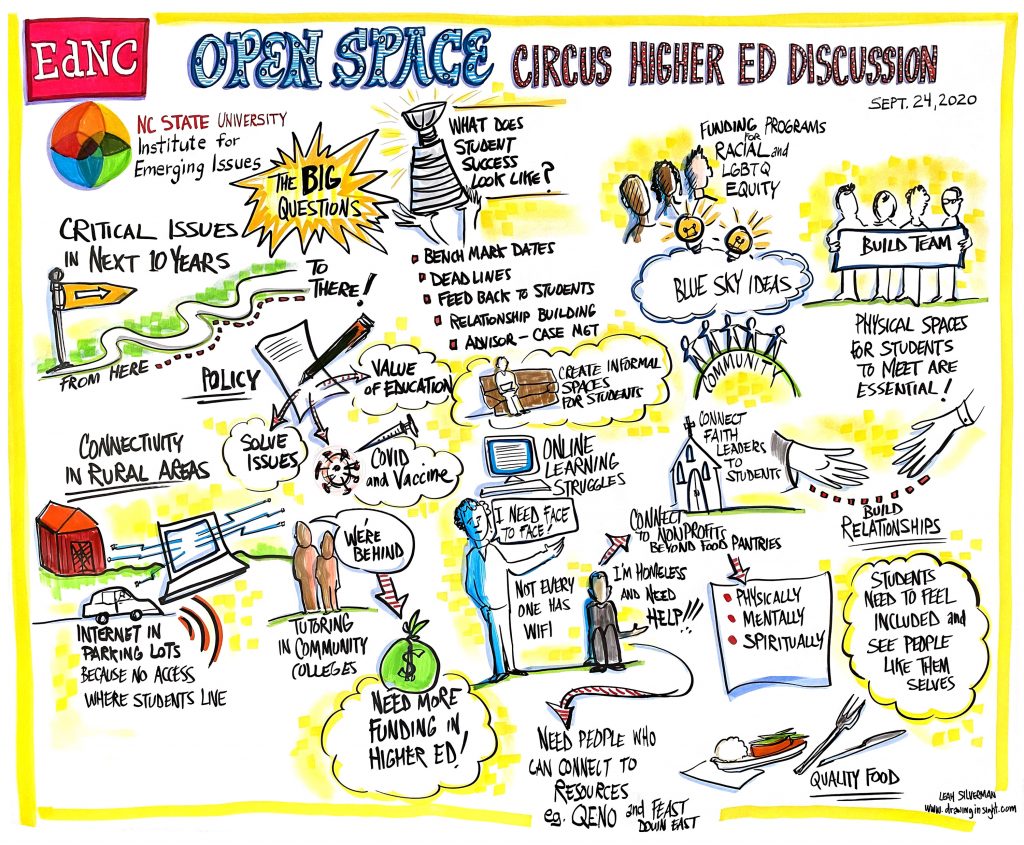 EdNC
OPEN SPACE CIRCUS HIGHER ED DISCUSSION
SEPT. 24, 2020
NC STATE UNIVERSITY
Institute for
Emerging Issues
THE BIG
QUESTIONS
WHAT DOES
STUDENT
SUCCESS
LOOK LIKE?
BENCH MARK DATES
DEADLINES
FEED BACK TO STUDENTS
RELATIONSHIP BUILDING
ADVISOR - CASE MGT
FUNDING PROGRAMS
FOR
RACIAL and
LGBTQ
EQUITY
BLUE SKY IDEAS
COMMUNITY
BUILD TEAM
PHYSICAL SPACES
FOR STUDENTS
TO MEET ARE
ESSENTIAL!
CRITICAL ISSUES
IN NEXT 10 YEARS
TO
THERE!
FROM HERE
POLICY
VALUE
OF EDUCATION
SOLVE
ISSUES
COVID
and VACCINE
CREATE INFORMAL
SPACES
FOR STUDENTS
CONNECT
FAITH
LEADERS
TO
STUDENTS
BUILD
RELATIONSHIPS
CONNECTIVITY
IN RURAL AREAS
INTERNET IN
PARKING LOTS
BECAUSE NO ACCESS
WHERE STUDENTS LIVE
WE'RE
BEHIND
TUTORING
IN COMMUNITY
COLLEGES
$
NEED MORE
FUNDING IN
HIGHER ED!
ONLINE
LEARNING
STRUGGLES
I NEED FACE
TO FACE!
NOT EVERY
ONE HAS
WIFI
I'M HOMELESS
AND NEED
HELP!!!
CONNECT
TO NONPROFITS
BEYOND FOOD PANTRIES
PHYSICALLY
MENTALLY
SPIRITUALLY
STUDENTS
NEED TO FEEL
INCLUDED and
SEE PEOPLE
LIKE THEM
SELVES
NEED PEOPLE WHO
CAN CONNECT TO
RESOURCES
eg. QENO and FEAST
DOWN EAST
QUALITY FOOD
LEAH SILVERMAN
www.drawinginsight.com